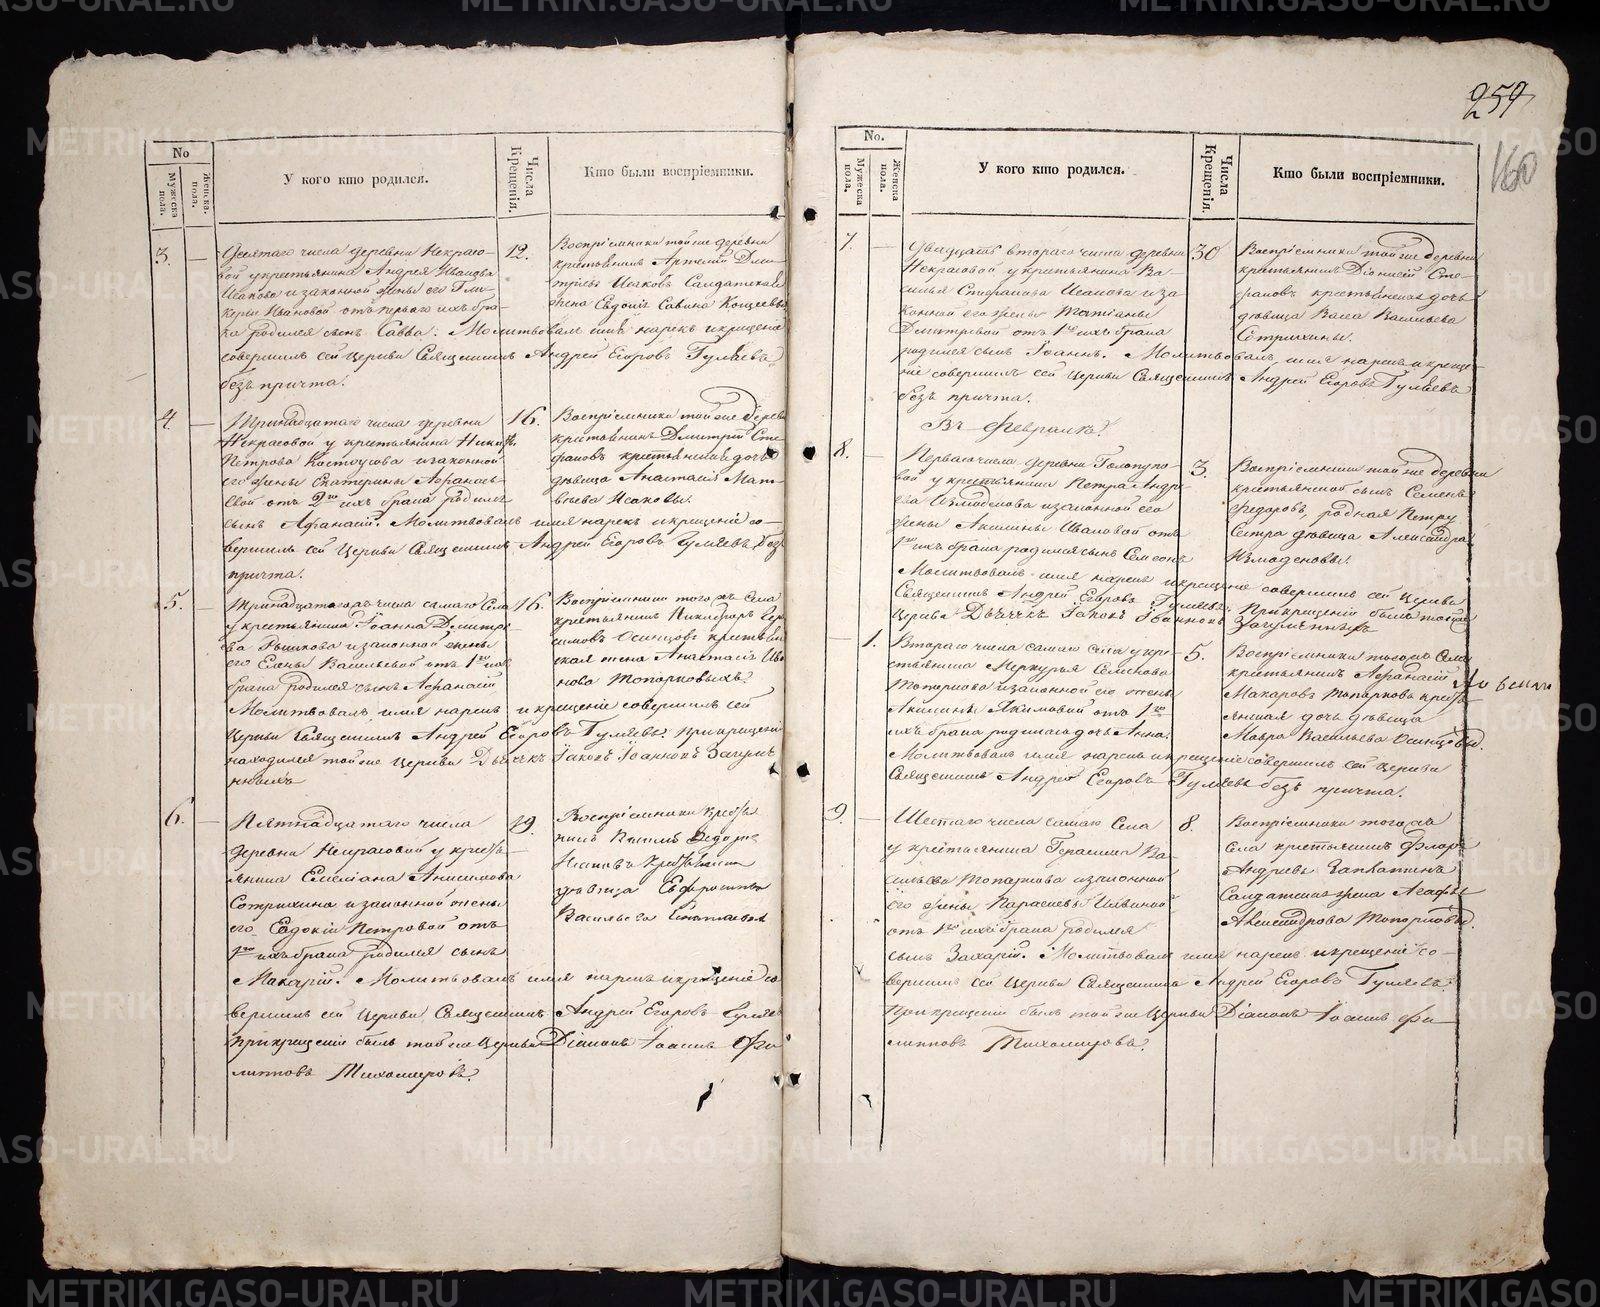 259
160
No
Мужеска пола.
Женска. пола.
У кого кто родился.
Числа Крещенія.
Кто были воспріемники.
3.
Десятаго числа деревни Некрасо-
вой у крестьянина Андрея Иванова
Исакова и законной жены его Гли-
керіи Ивановой отъ перваго ихъ бра-
ка родился сынъ Савва. Молитвовалъ имя нарекъ и крещеніе
совершилъ сей Церкви Священникъ Андрей Егоровъ Гуляевъ
безъ причта.
12.
Воспріемники той же деревни
крестьянинъ Артемій Дми-
тріевъ Исаковъ Салдатская
жена Евдокія Савина
4.
Тринадцатаго числа деревни
Некрасовой у крестьянина Никиф.
Петрова Костоусова и законной
его жены Екатерины Афанась-
евой отъ 2го ихъ брака родился
сынъ Афанасій. Молитвовалъ имя нарекъ и крещеніе со-
вершилъ сей Церкви Священникъ Андрей Егоровъ Гуляевъ безъ
причта.
16.
Воспріемники той же дерев
крестьянинъ Дмитрій Сте-
фановъ крестьянская дочь
дѣвица Анастасія Мат-
вѣева Исаковы.
5.
Тринадцатаго числа самаго Села
у крестьянина Іоанна Дмитрі-
ева и законной жены
его Елены Васильевой отъ 1го ихъ
брака родился сынъ Афанасій
Молитвовалъ имя нарекъ и крещеніе совершилъ сей
Церкви Священникъ Андрей Егоровъ Гуляевъ. При крещеніи
находился той же Церкви Дьячекъ Іаковъ Іоанновъ Загумен-
ныхъ
16.
Воспріемники того жъ Села
крестьянинъ Никифоръ Гера-
симовъ Осинцовъ крестьян
ская жена Анастасія Ива
нова Топорковыхъ.
6.
Пятнадцатаго числа
деревни Некрасовой у кресть-
янина Емеліана Анисимова
Сотрихина и законной жены
его Евдокіи Петровой отъ
1го ихъ брака родился сынъ
Макарій. Молитвовалъ имя нарекъ и крещеніе со
вершилъ сей Церкви Священникъ Андрей Егоровъ Гуляевъ
При крещеніи былъ той же Церкви Діаконъ Іоаннъ Фи
липповъ Тихомировъ.
19.
Воспріемники кресть
Исаковъ крестьянская
дѣвица Евфросинья
Васильева
No.
Мужеска пола.
Женска пола.
У кого кто родился.
Числа Крещенія.
Кто были воспріемники.
7.
Двадцать втораго числа деревни
Некрасовой у крестьянина Ва-
силья Стефанова Исакова и за
конной его жены Татіаны
Дмитревой отъ 1го ихъ брака
родился сынъ Іоаннъ. Молитвовалъ имя нарекъ и креще-
ніе совершилъ сей Церкви Священникъ Андрей Егоровъ Гуляевъ
безъ причта.
30
Воспріемники той же деревни
крестьянинъ Діонисій Сте-
фановъ крестьянская дочь
дѣвица Васса Васильева
Сотрихины.
Въ Февралѣ.
8.
Перваго числа деревни Голопупо-
вой у крестьянина Петра Андре
ева Измоденова и законной его
жены Акилины Ивановой отъ
1го ихъ брака родился сынъ Симеонъ
Молитвовалъ имя нарекъ и крещеніе совершилъ сей Церкви
Священникъ Андрей Егоровъ Гуляевъ. При крещеніи былъ той же
Церкви Дьячекъ Іаковъ Іоанновъ Загуменныхъ
3.
Воспріемники той же деревни
крестьянской сынъ Семенъ
Федоровъ, родная Петру
Сестра дѣвица Александра
Измоденовы.
1.
Втораго числа самаго села у кре-
стьянина Меркурья Семенова
Топоркова и законной его жены
Акилины Якимовой отъ 1го
ихъ брака родилась дочь Анна.
Молитвовалъ имя нарекъ и крещеніе совершилъ сей Церкви
Священникъ Андрей Егоровъ Гуляевъ безъ причта.
5.
Воспріемники того жъ Села
крестьянинъ Афанасій
Макаровъ Топорковъ кресть
янская дочь дѣвица
Мавра Васильева Осинцовы.
9.
Шестаго числа самаго Села
у крестьянина Герасима Ва-
сильева Топоркова и законной
его жены Парасковьи Ильиной
отъ 1го ихъ брака родился
сынъ Захарій. Молитвовалъ имя нарекъ и крещеніе со-
вершилъ сей Церкви Священникъ Андрей Егоровъ Гуляевъ.
При крещеніи былъ той же Церкви Діаконъ Іоаннъ Фи
липповъ Тихомировъ.
8.
Воспріемники того жъ
села крестьянинъ Флоръ
Андреевъ Заплатинъ
Салдатская жена Агафья
Александрова Топорковы.
METRIKI.GASO-URAL.RU